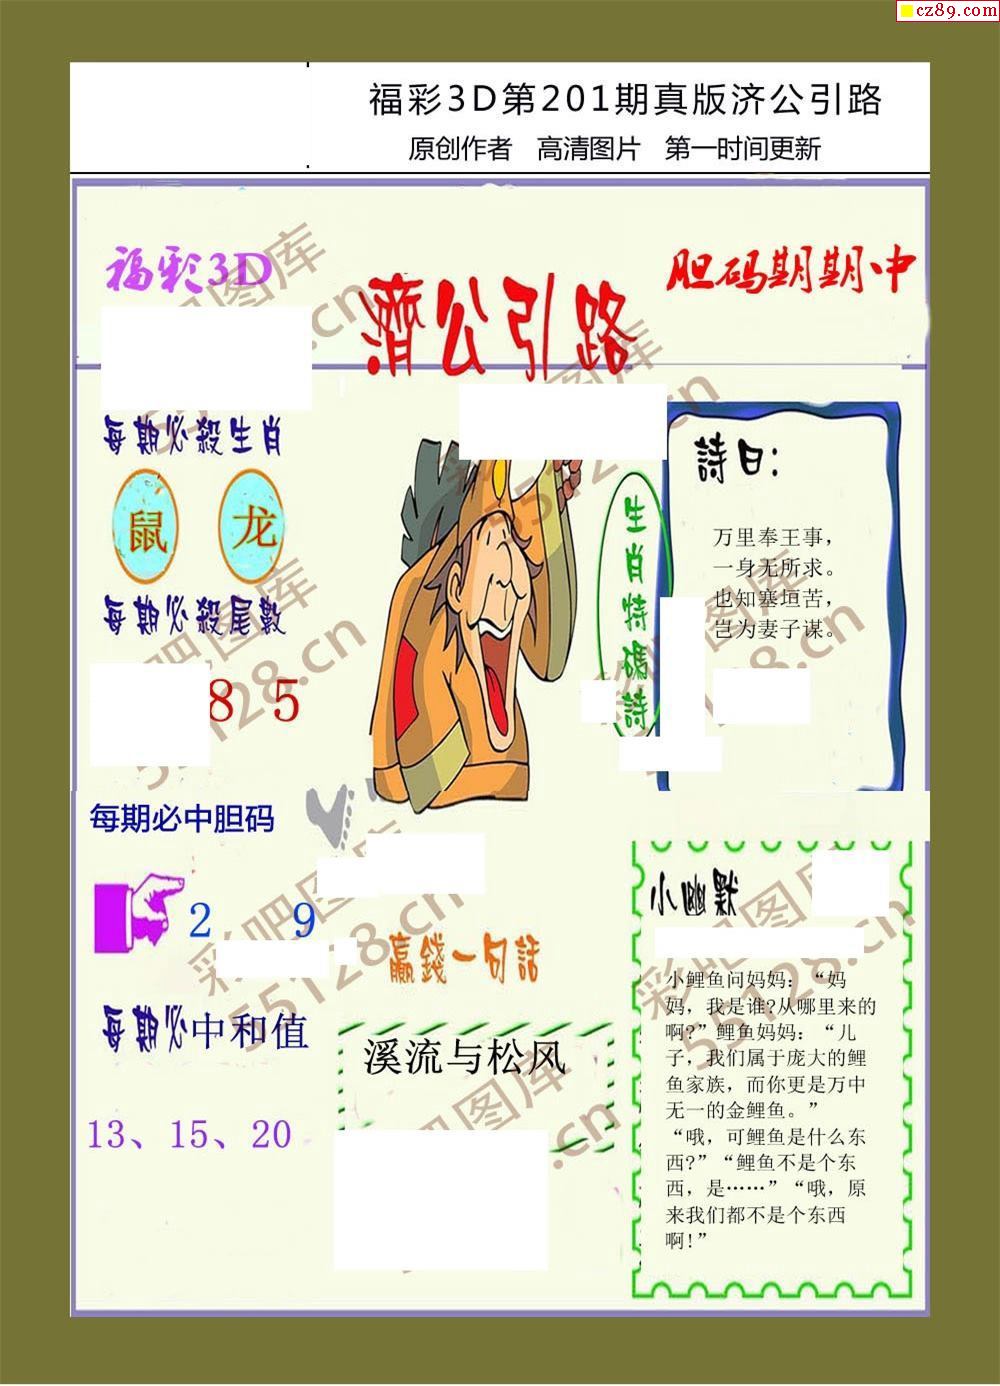 cz89.com
福彩3D第201期真版济公引路
原创作者 高清图片 第一时间更新
福彩3D
濟公引路
胆码期期中
每期必殺生肖
鼠 龙
每期必殺尾數
8 5
每期必中胆码
2 9
每期必中和值
13、15、20
生肖特碼詩
詩曰:
万里奉王事，
一身无所求。
也知塞垣苦，
岂为妻子谋。
贏錢一句話
溪流与松风
小幽默
小鲤鱼问妈妈：“妈
妈，我是谁?从哪里来的
啊?”鲤鱼妈妈：“儿
子，我们属于庞大的鲤
鱼家族，而你更是万中
无一的金鲤鱼。”
“哦，可鲤鱼是什么东
西?”“鲤鱼不是个东
西，是……”“哦，原
来我们都不是个东西
啊!”
彩吧图库
55128.cn